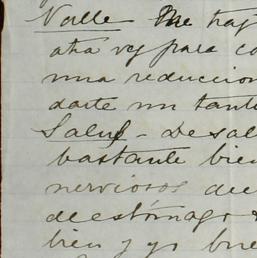 Nalle The traj
otra vez para co
una reduccion
darte un tanto
Salud - De sal
bastante bien
nerviosos de
de estómago
bien y yo bue